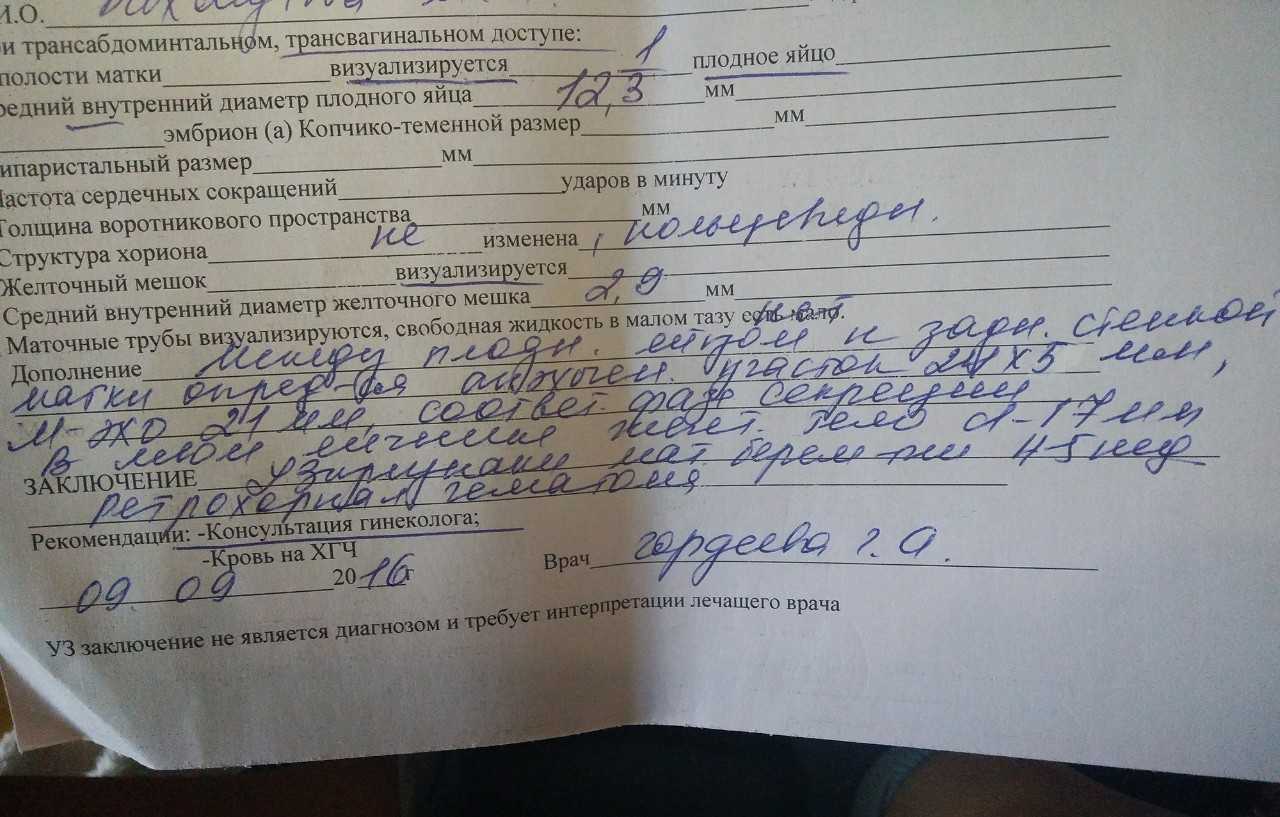 И.О.
ри трансабдоминтальном, трансвагинальном доступе:
полости матки визуализируется 1 плодное яйцо
редний внутренний диаметр плодного яйца 12,3 мм
эмбрион (а) Копчико-теменной размер мм
ипаристальный размер мм
Частота сердечных сокращений ударов в минуту
Толщина воротникового пространства мм
Структура хориона не изменена, кольцевидн.
Желточный мешок визуализируется
Средний внутренний диаметр желточного мешка 2,9 мм
Маточные трубы визуализируются, свободная жидкость в малом тазу есть мало. нет
Дополнение между плодн. яйцом и задн. стенкой
матки опред-ся анэхоген. участок 24х5 мм,
М-эхо 21 мм, соответ. фазе секреции
В левом яичнике желт. тело d-17мм
ЗАКЛЮЧЕНИЕ УЗ признаки мат. берем-ти 4-5 нед
ретрохориал. гематома
Рекомендации: -Консультация гинеколога;
-Кровь на ХГЧ
09 09 2016г Врач Гордеева Г. А.
УЗ заключение не является диагнозом и требует интерпретации лечащего врача